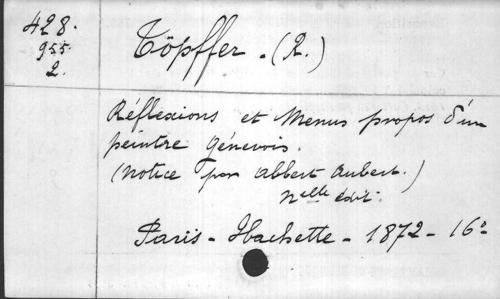 428.
955.
2.
Töpffer. (R.)
Réflexions et Menus propos d'un
peintre génevois.
(notice par Albert Aubert.)
Nelle édit.
Paris - Hachette - 1872 - 16°